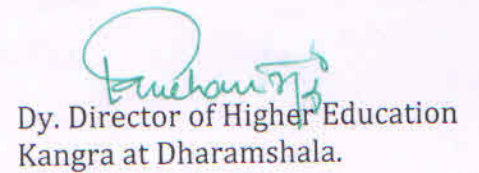 Dy. Director of Higher Education
Kangra at Dharamshala.